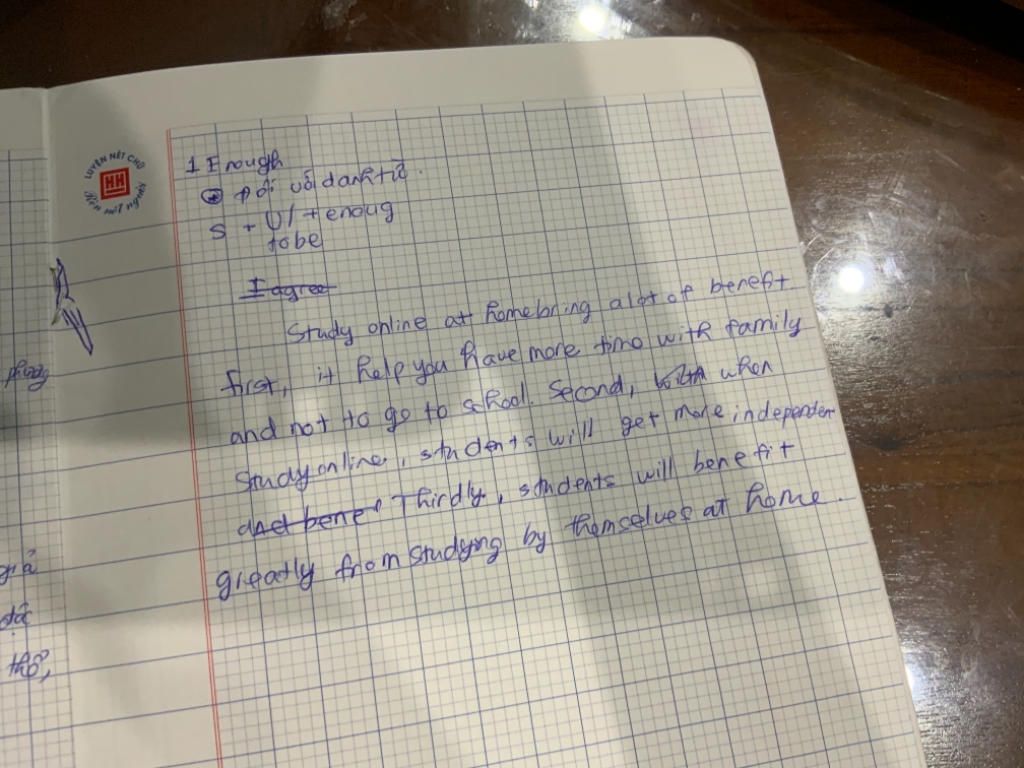 LUYỆN NÉT CHỮ
Rèn nết người
1 Enough
Đối với danh từ.
S + V/ + enoug
tobe
I agree
Study online at home bring a lot of benefit
first, it help you have more time with family
and not to go to school. Second, when
study online, students will get more independen
and bene Thirdly, students will benefit
greatly from studying by themselves at home.
phong
giả
thổ,